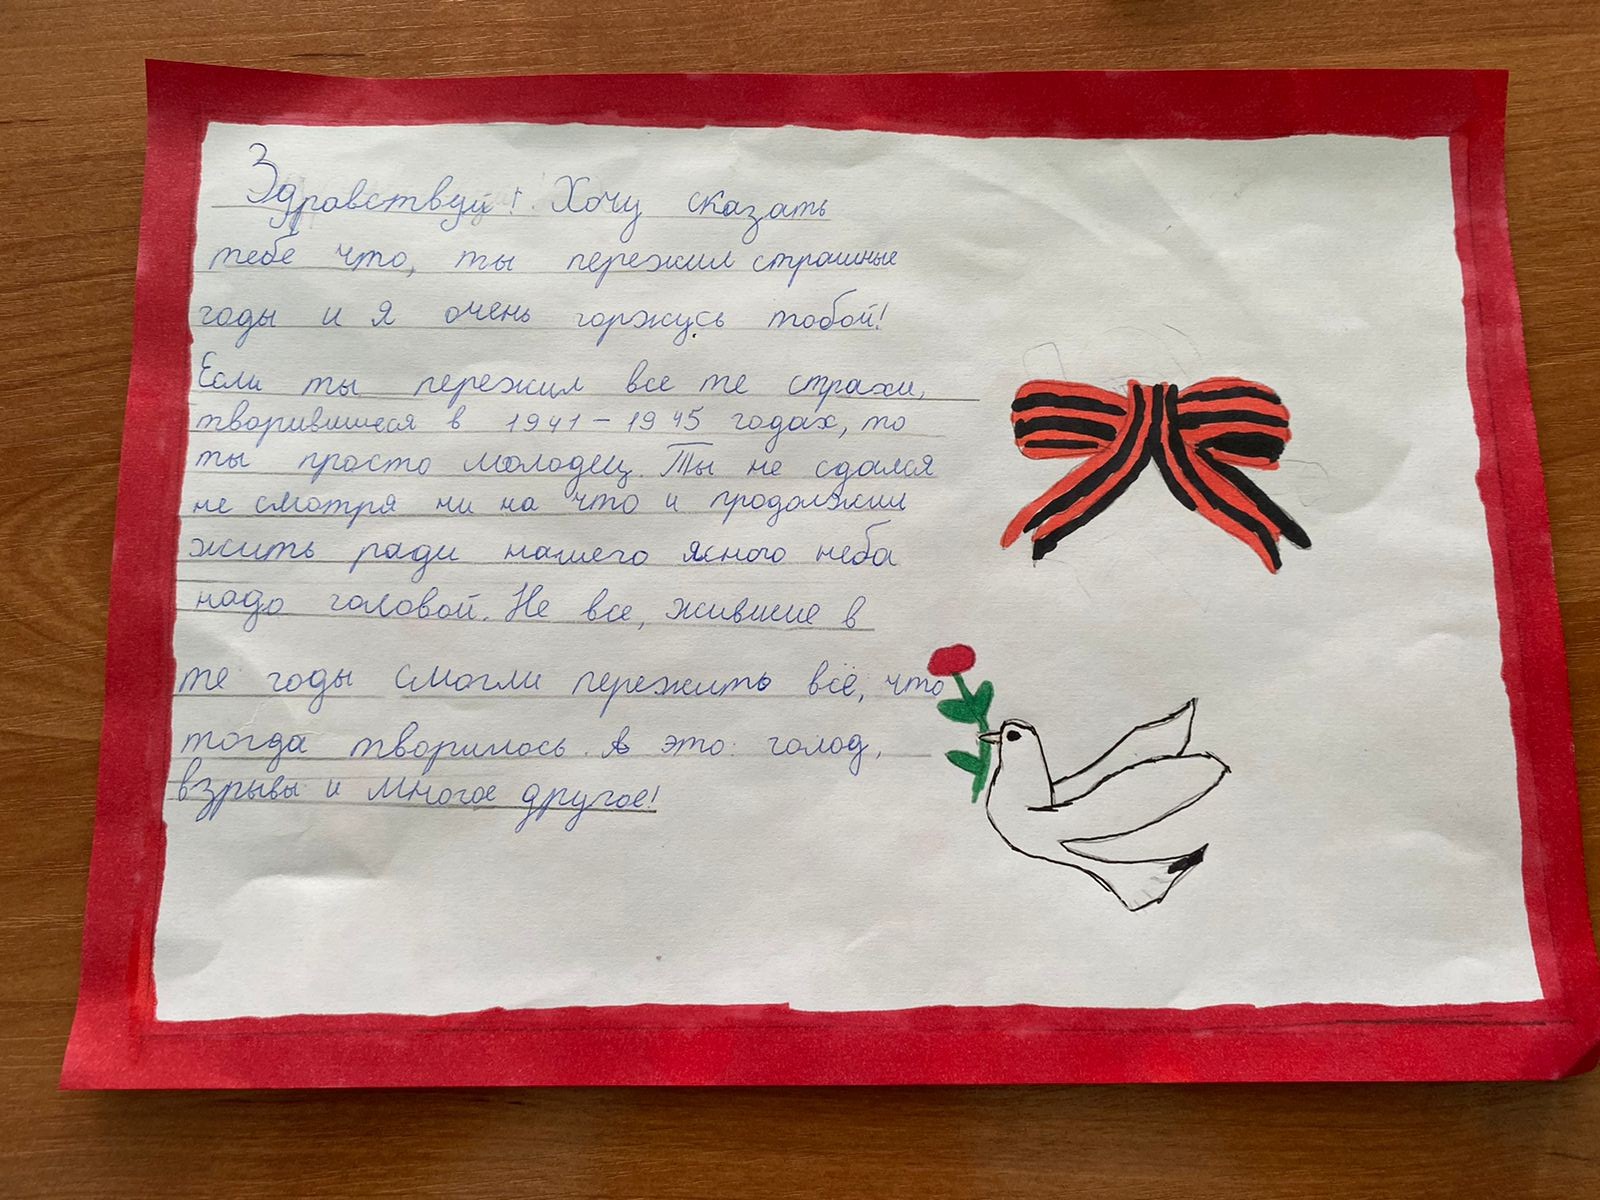 Здравствуй! Хочу сказать
тебе что, ты пережил страшные
годы и я очень горжусь тобой!
Если ты пережил все те страхи,
творившиеся в 1941 – 1945 годах, то
ты просто молодец. Ты не сдался
не смотря ни на что и продолжил
жить ради нашего ясного неба
надо головой. Не все, жившие в
те годы смогли пережить всё, что
тогда творилось. А это: голод,
взрывы и многое другое!